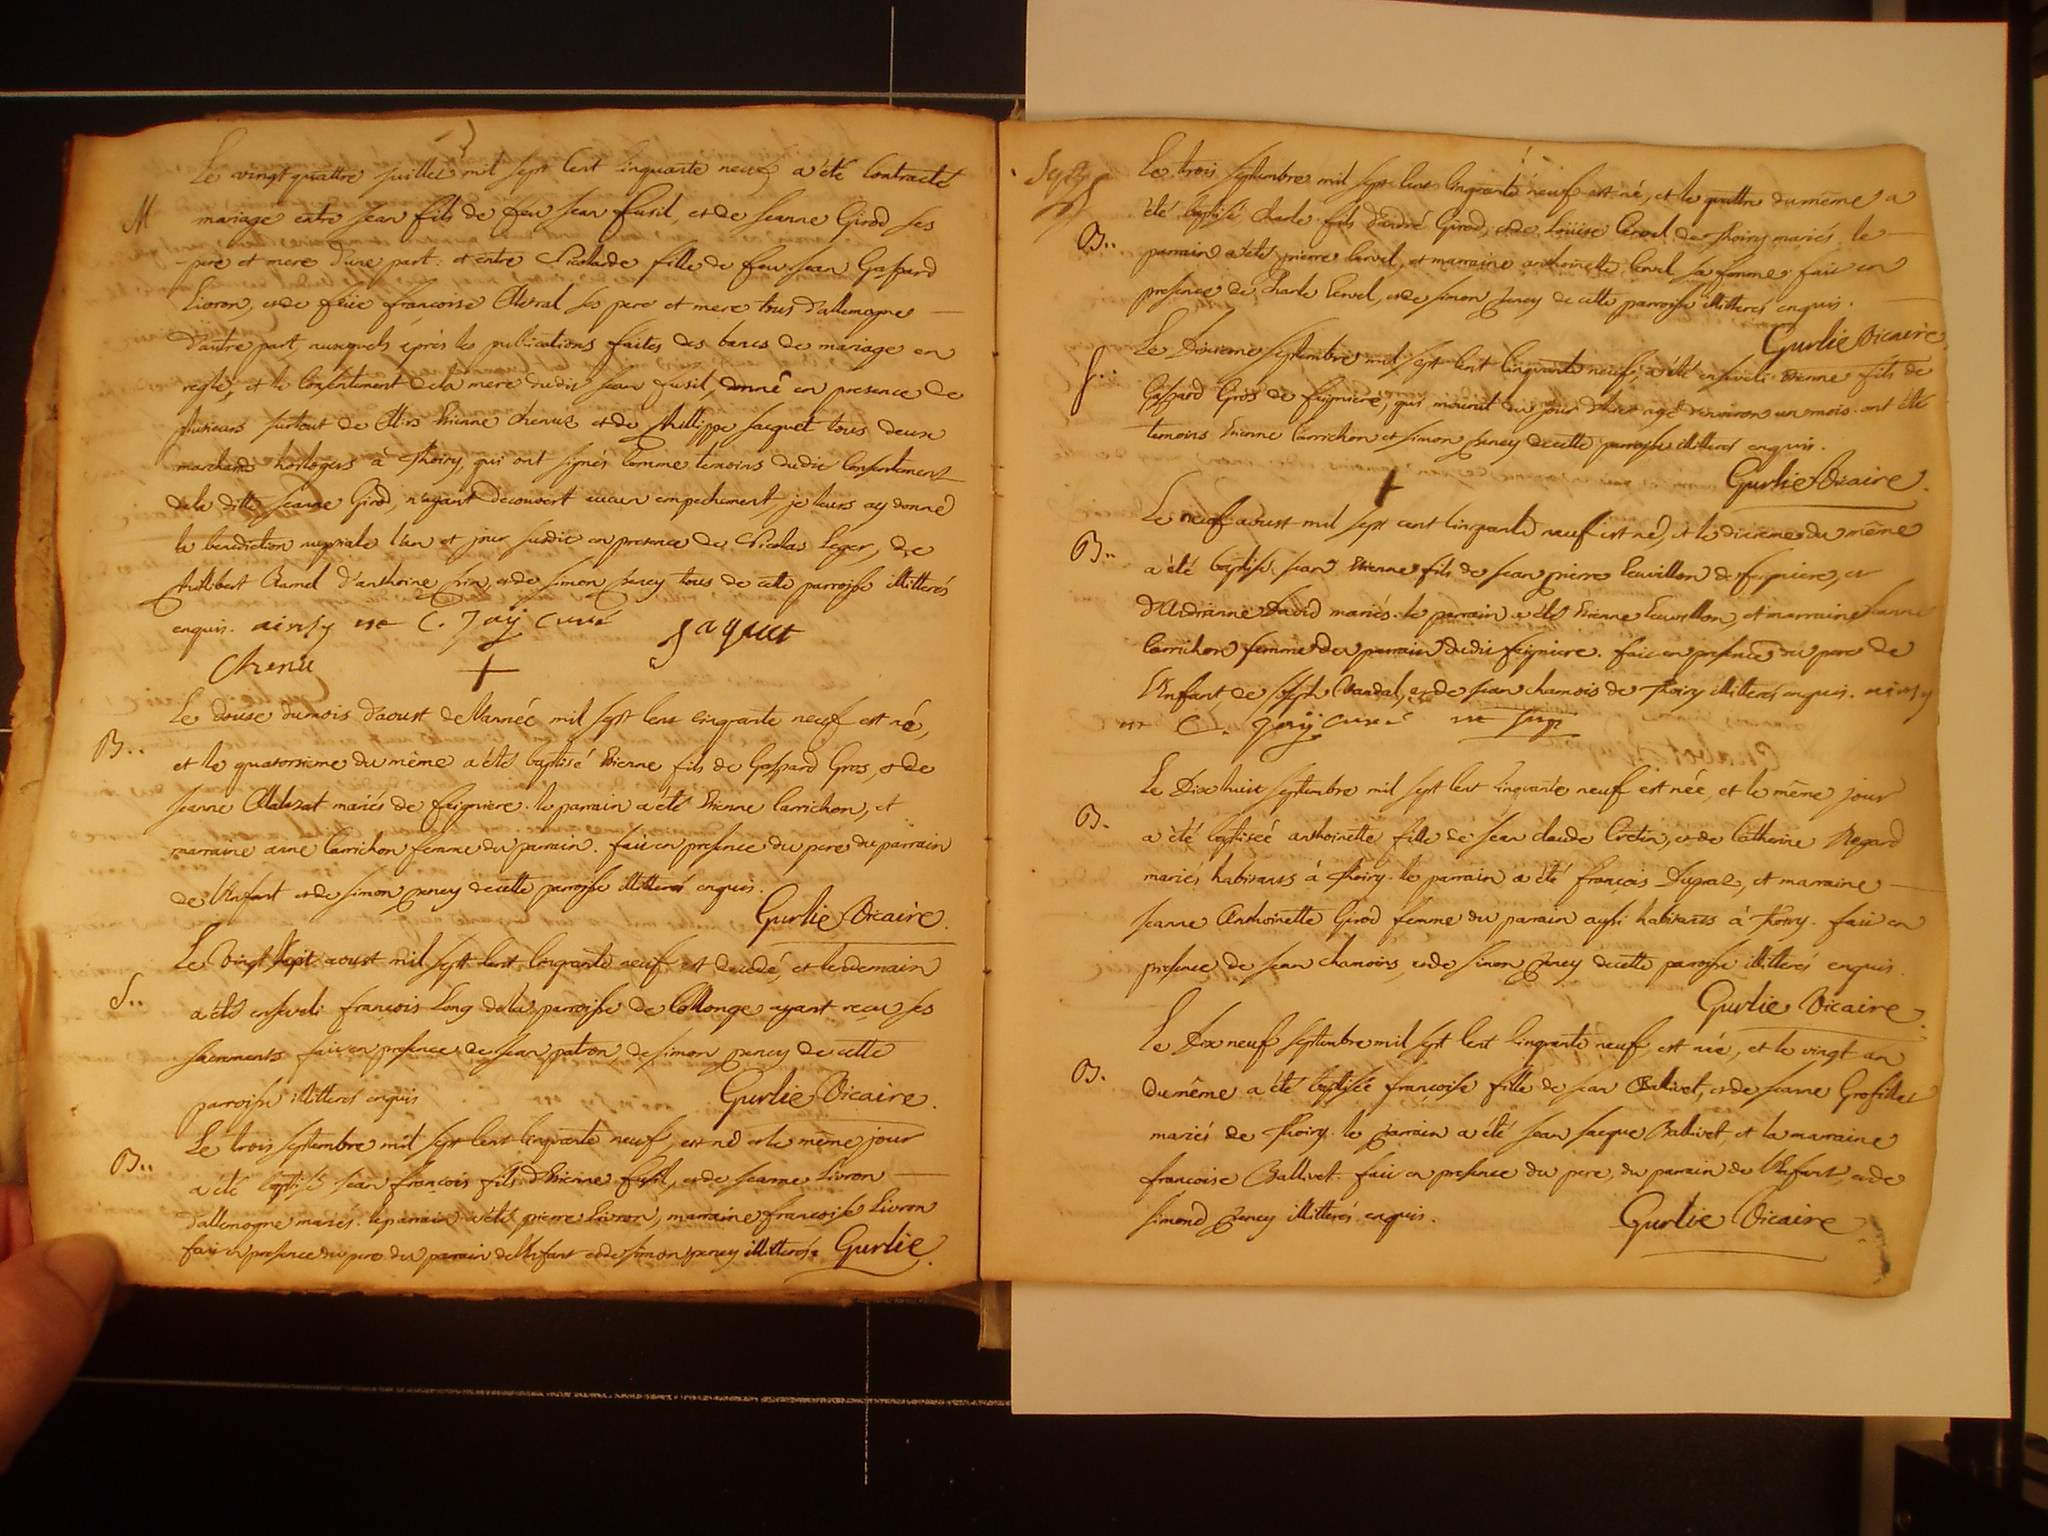 Le vingt quattre juillet mil sept cent cinquante neuf a été contracté
M mariage entre jean fils de feu jean fusil, et de jeanne Girod ses
pere et mere d'une part: et entre Nicolarde fille de feu jean Gaspard
Livron, et de feüe francoise Meral ses pere et mere tous d'allemogne
d'autre part, auxquels après les publications faites des bancs de mariage en
regle, et le consentement de la mere dudit jean fusil, donné en presence de
plusieurs surtout de Mrs Etienne chenuz et de phillippe jacquet tous deux
marchands horlogers à Thoiry, qui ont signés comme temoins dudit consentement
dela ditte jeanne Girod, n'ayant decouvert aucun empechement, je leurs ay donné
la benediction nuptiale l'an et jour susdit en presence de Nicolas Leger, de
phillibert Ramel d'anthoine prin, et de simon pency tous de cette parroisse illitterés
enquis. ainsy est C. Joÿ curé Jaquet
Chenu
Le douse dumois d'aoust de l'année mil sept cent cinquante neuf est né,
B.. et le quatorsieme du même a été baptisé Etienne fils de Gaspard Gros, & de
jeanne Malezat mariés de feigniere. le parrain a été Etienne Carrichon, et
marraine anne Carrichon femme du parrain. fait en presence du pere du parrain
de l'Enfant et de simon pency de cette parroisse illitterés enquis.
Gurlie Vicaire.
Le vingt sept aoust mil sept cent cinquante neuf est decedé, et lendemain
S.. a été enseveli françois Long dela parroisse de Collonge ayant reçu ses
sacrements fait en presence de jean patron, de simon pency de cette
parroisse illitterés enquis Gurlie Vicaire.
Le trois septembre mil sept cent cinquante neuf, est né et le même jour
B.. a été baptisé jean françois fils d'Etienne fusil, et de jeanne Livron
d'allemogne mariés. le parrain a été pierre Livron, marraine françoise Livron
fait en presence du pere du parrain de l'Enfant et de simon pency illitterés. Gurlie.
Le trois septembre mil sept cent cinquante neuf est né, et le quattre du même a
été baptisé charle fils d'andré Girod, et de Loüise Levrel de Thoiry mariés. le
B.. parrain a été pierre Levrel, et marraine anthoinette Levrel sa femme. fait en
presence de Charle Levrel, et de simon pency de cette parroisse illitterés enquis.
Gurlie Vicaire.
Le Dixieme septembre mil sept cent cinquante neuf, a été enseveli Etienne fils de
S.. Gaspard Gros de feigniere, qui mourut du jour d'hier agé d'environ un mois. ont été
temoins Etienne Carrichon et simon pency de cette parroisse illitterés enquis.
Gurlie Vicaire.
Le neuf aoust mil sept cent cinquante neuf est né, et le dixieme du même
B.. a été baptisé jean Etienne fils de jean pierre Levrillon de feigniere, et
d'Andrianne David mariés. le parrain a été Etienne Levrillon, et marraine jeanne
Carrichon femme du parrain dudit feigniere. fait en presence du pere de
l'Enfant, de joseph Vandal, et de jean chamois de Thoiry illitterés enquis. ainsy
est C. Joÿ curé
Le Dix huit septembre mil sept cent cinquante neuf est née, et le même jour
B. a été baptiseé anthoinette fille de jean claude Cretin, et de Catherine Regard
mariés habitants à Thoiry. le parrain a été françois Dupraz, et marraine
jeanne Anthoinette Girod femme du parrain aussi habitants à Thoiry. fait en
presence de jean chamois, et de simon pency de cette parroisse illitterés enquis.
Gurlie Vicaire.
Le Dix neuf septembre mil sept cent cinquante neuf, est née, et le vingt un
B. du même a été baptisée françoise fille de jean Ballivet, et de jeanne Grosfillex
mariés de Thoiry. le parrain a été jean jacque Ballivet, et la marraine
francoise Ballivet. fait en presence du pere, du parrain de l'Enfant, et de
simond pency illitterés enquis. Gurlie Vicaire